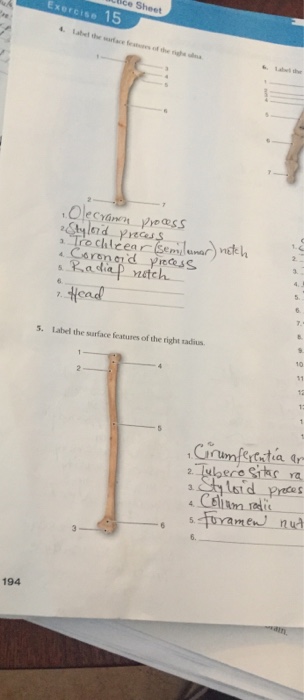 Exercise 15
ice Sheet
4. Label the surface features of the right ulna.
6. Label the
1. Olecranon process
2. Styloid process
3. Trochlear (semilunar) notch
4. Coronoid process
5. Radial notch
6.
7. Head
5. Label the surface features of the right radius.
1
2
3
4
5
6
1. Cirumferentia ar
2. Tuberositas ra
3. Styloid proces
4. Collum radii
5. Foramen nut
6.
194